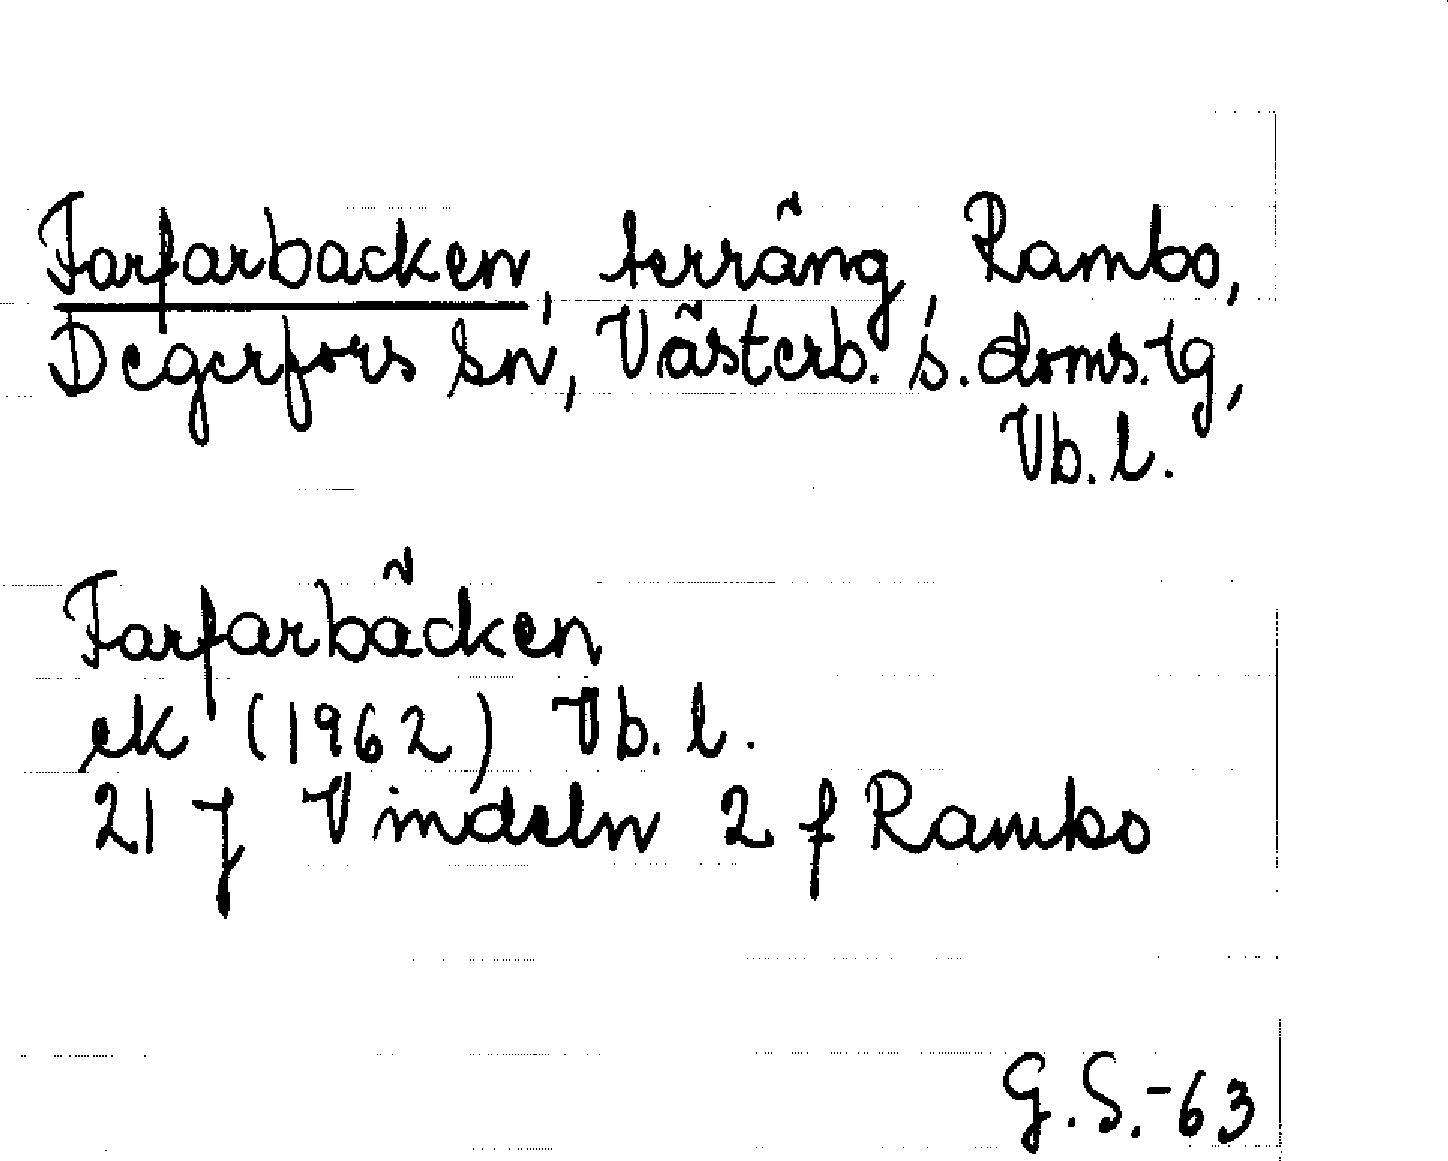 Farfarbacken, terräng, Rambo,
Degerfors sn, Västerb. s. doms.tg,
Vb. l.
Farfarbäcken
ek (1962) Vb. l.
21 J Vindeln 2 f Rambo
G.S.-63